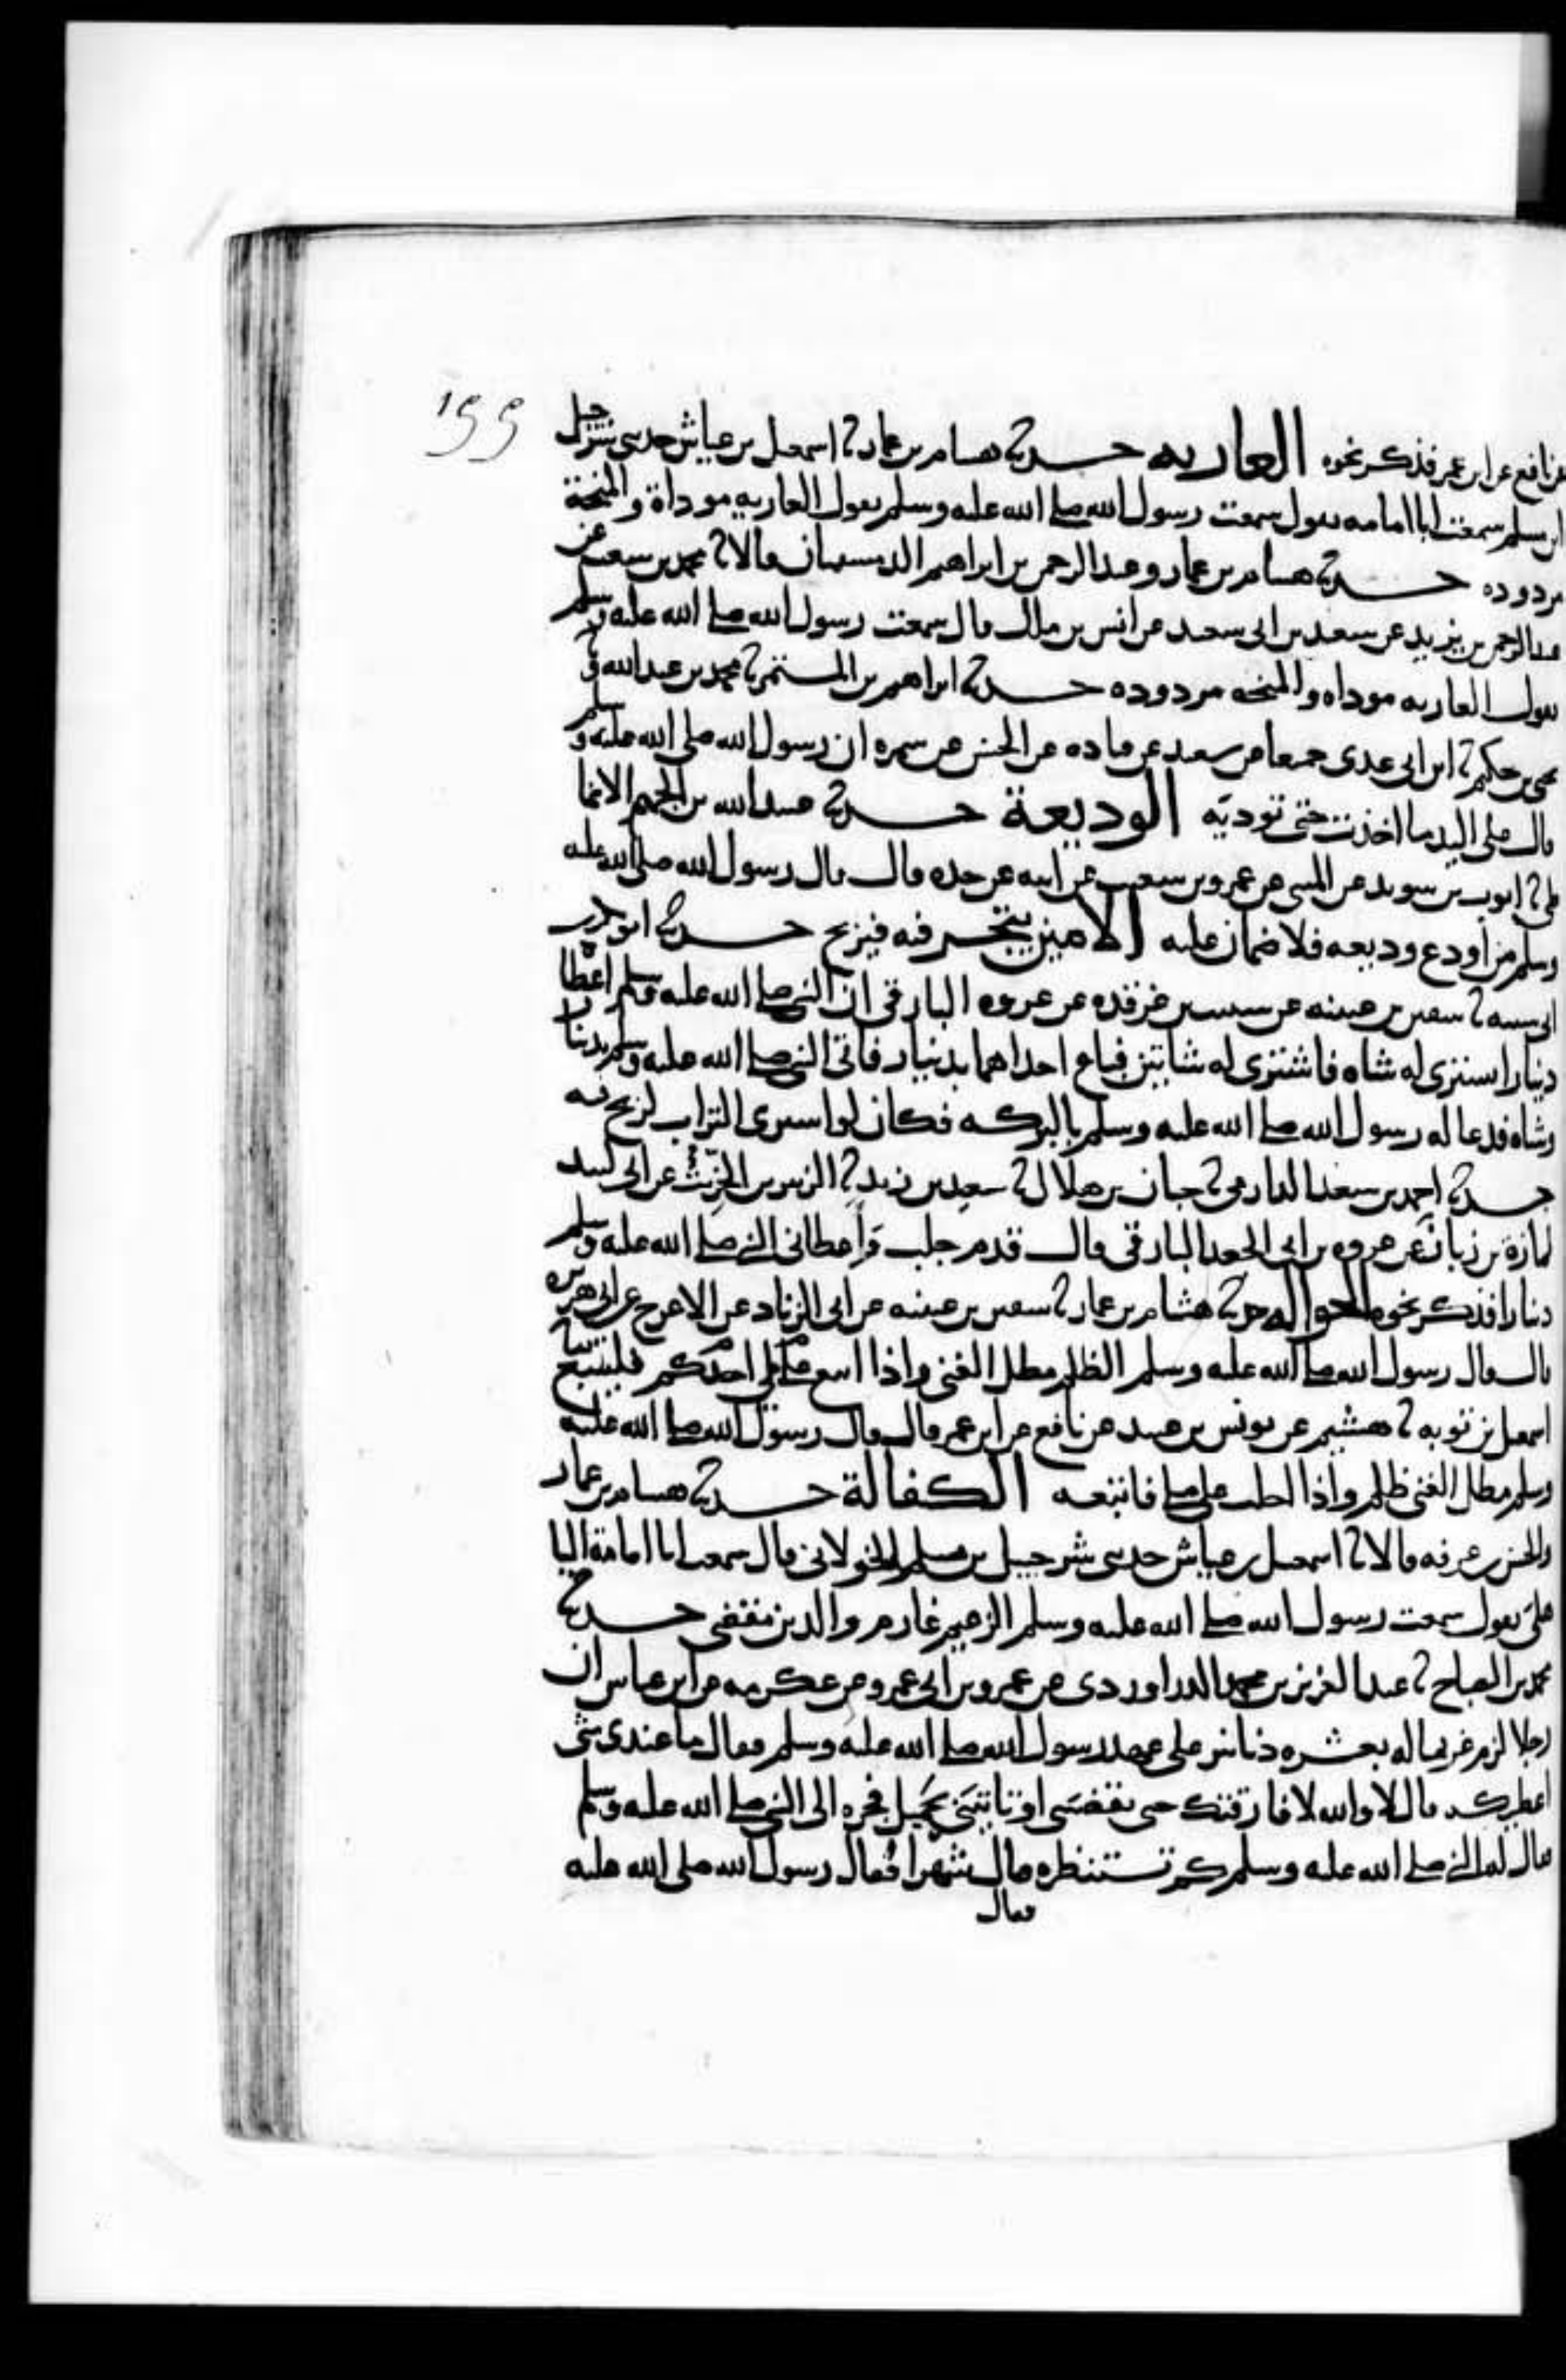 ١٩٩
عن نافع عن ابن عمر فذكر نحوه العاريه حدثنا هشام بن عمار ثنا اسمعيل بن عياش حدثني شرحبيل
ابن مسلم سمعت ابا امامه يقول سمعت رسول الله صلى الله عليه وسلم يقول العاريه موداة والمنحة
مردوده حدثنا هشام بن عمار وعبد الرحمن بن ابراهيم الدمشقيان قالا ثنا محمد بن شعيب عن
عبد الرحمن بن يزيد عن سعيد بن ابى سعيد عن انس بن ملك قال سمعت رسول الله صلى الله عليه وسلم
يقول العاريه موداه والمنحه مردوده حدثنا ابراهيم بن المستمر ثنا محمد بن عبد الله وثنا
يحيى بن حكيم ثنا ابن ابى عدى جميعا عن سعيد عن قتاده عن الحسن عن سمره ان رسول الله صلى الله عليه وسلم
قال على اليد ما اخذت حتى توديه الوديعة حدثنا عبيد الله بن الجهم الانما
طى ثنا ايوب بن سويد عن المثنى عن عمرو بن شعيب عن ابيه عن جده قال قال رسول الله صلى الله عليه
وسلم من اودع وديعه فلا ضمان عليه الامين يتجر فيه فيربح حدثنا ابو بكر بن
ابى شيبه ثنا سفين بن عيينه عن شبيب بن غرقده عن عروه البارقى ان النبى صلى الله عليه وسلم اعطاه
دينارا يشترى له شاه فاشترى له شاتين فباع احداهما بدينار فاتى النبى صلى الله عليه وسلم بدينار
وشاه فدعا له رسول الله صلى الله عليه وسلم بالبركه فكان لو اشترى التراب لربح فيه
حدثنا احمد بن سعيد الدارمى ثنا حبان بن هلال ثنا سعيد بن زيد ثنا الزبير بن الخريت عن ابى لبيد
لمازة بن زبان عن عروه بن ابى الجعد البارقى قال قدم جلب فاعطانى النبى صلى الله عليه وسلم
دينارا فذكر نحوه الحواله حدثنا هشام بن عمار ثنا سفين بن عيينه عن ابى الزناد عن الاعرج عن ابى هريره
قال قال رسول الله صلى الله عليه وسلم الظلم مطل الغنى واذا اتبع احدكم على ملى فليتبع حدثنا
اسمعيل بن توبه ثنا هشيم عن يونس بن عبيد عن نافع عن ابن عمر قال قال رسول الله صلى الله عليه
وسلم مطل الغنى ظلم واذا احلت على ملى فاتبعه الكفالة حدثنا هشام بن عمار
والحسن بن عرفه قالا ثنا اسمعيل بن عياش حدثني شرحبيل بن مسلم الخولانى قال سمعت ابا امامة البا
هلى يقول سمعت رسول الله صلى الله عليه وسلم الزعيم غارم والدين مقضى حدثنا
محمد بن الصباح ثنا عبد العزيز بن محمد الدراوردى عن عمرو بن ابى عمرو عن عكرمه عن ابن عباس ان
رجلا لزم غريما له بعشره دنانير على عهد رسول الله صلى الله عليه وسلم فقال ما عندى شى
اعطيكه قال لا والله لا فارقتك حتى تقضينى او تاتينى بحميل فجره الى النبى صلى الله عليه وسلم
فقال له النبى صلى الله عليه وسلم كم تستنظره قال شهرا فقال رسول الله صلى الله عليه
فقال